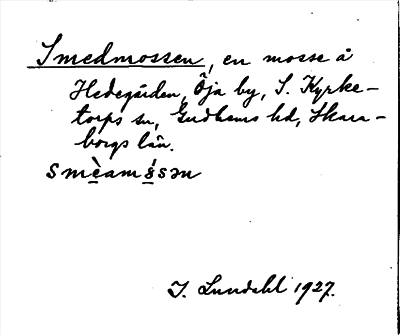 Smedmossen, en mosse å
Hedegården, Öja by, S. Kyrke-
torps sn, Gudhems hd, Skara-
borgs län.
smèamósən
I. Lundahl 1927.